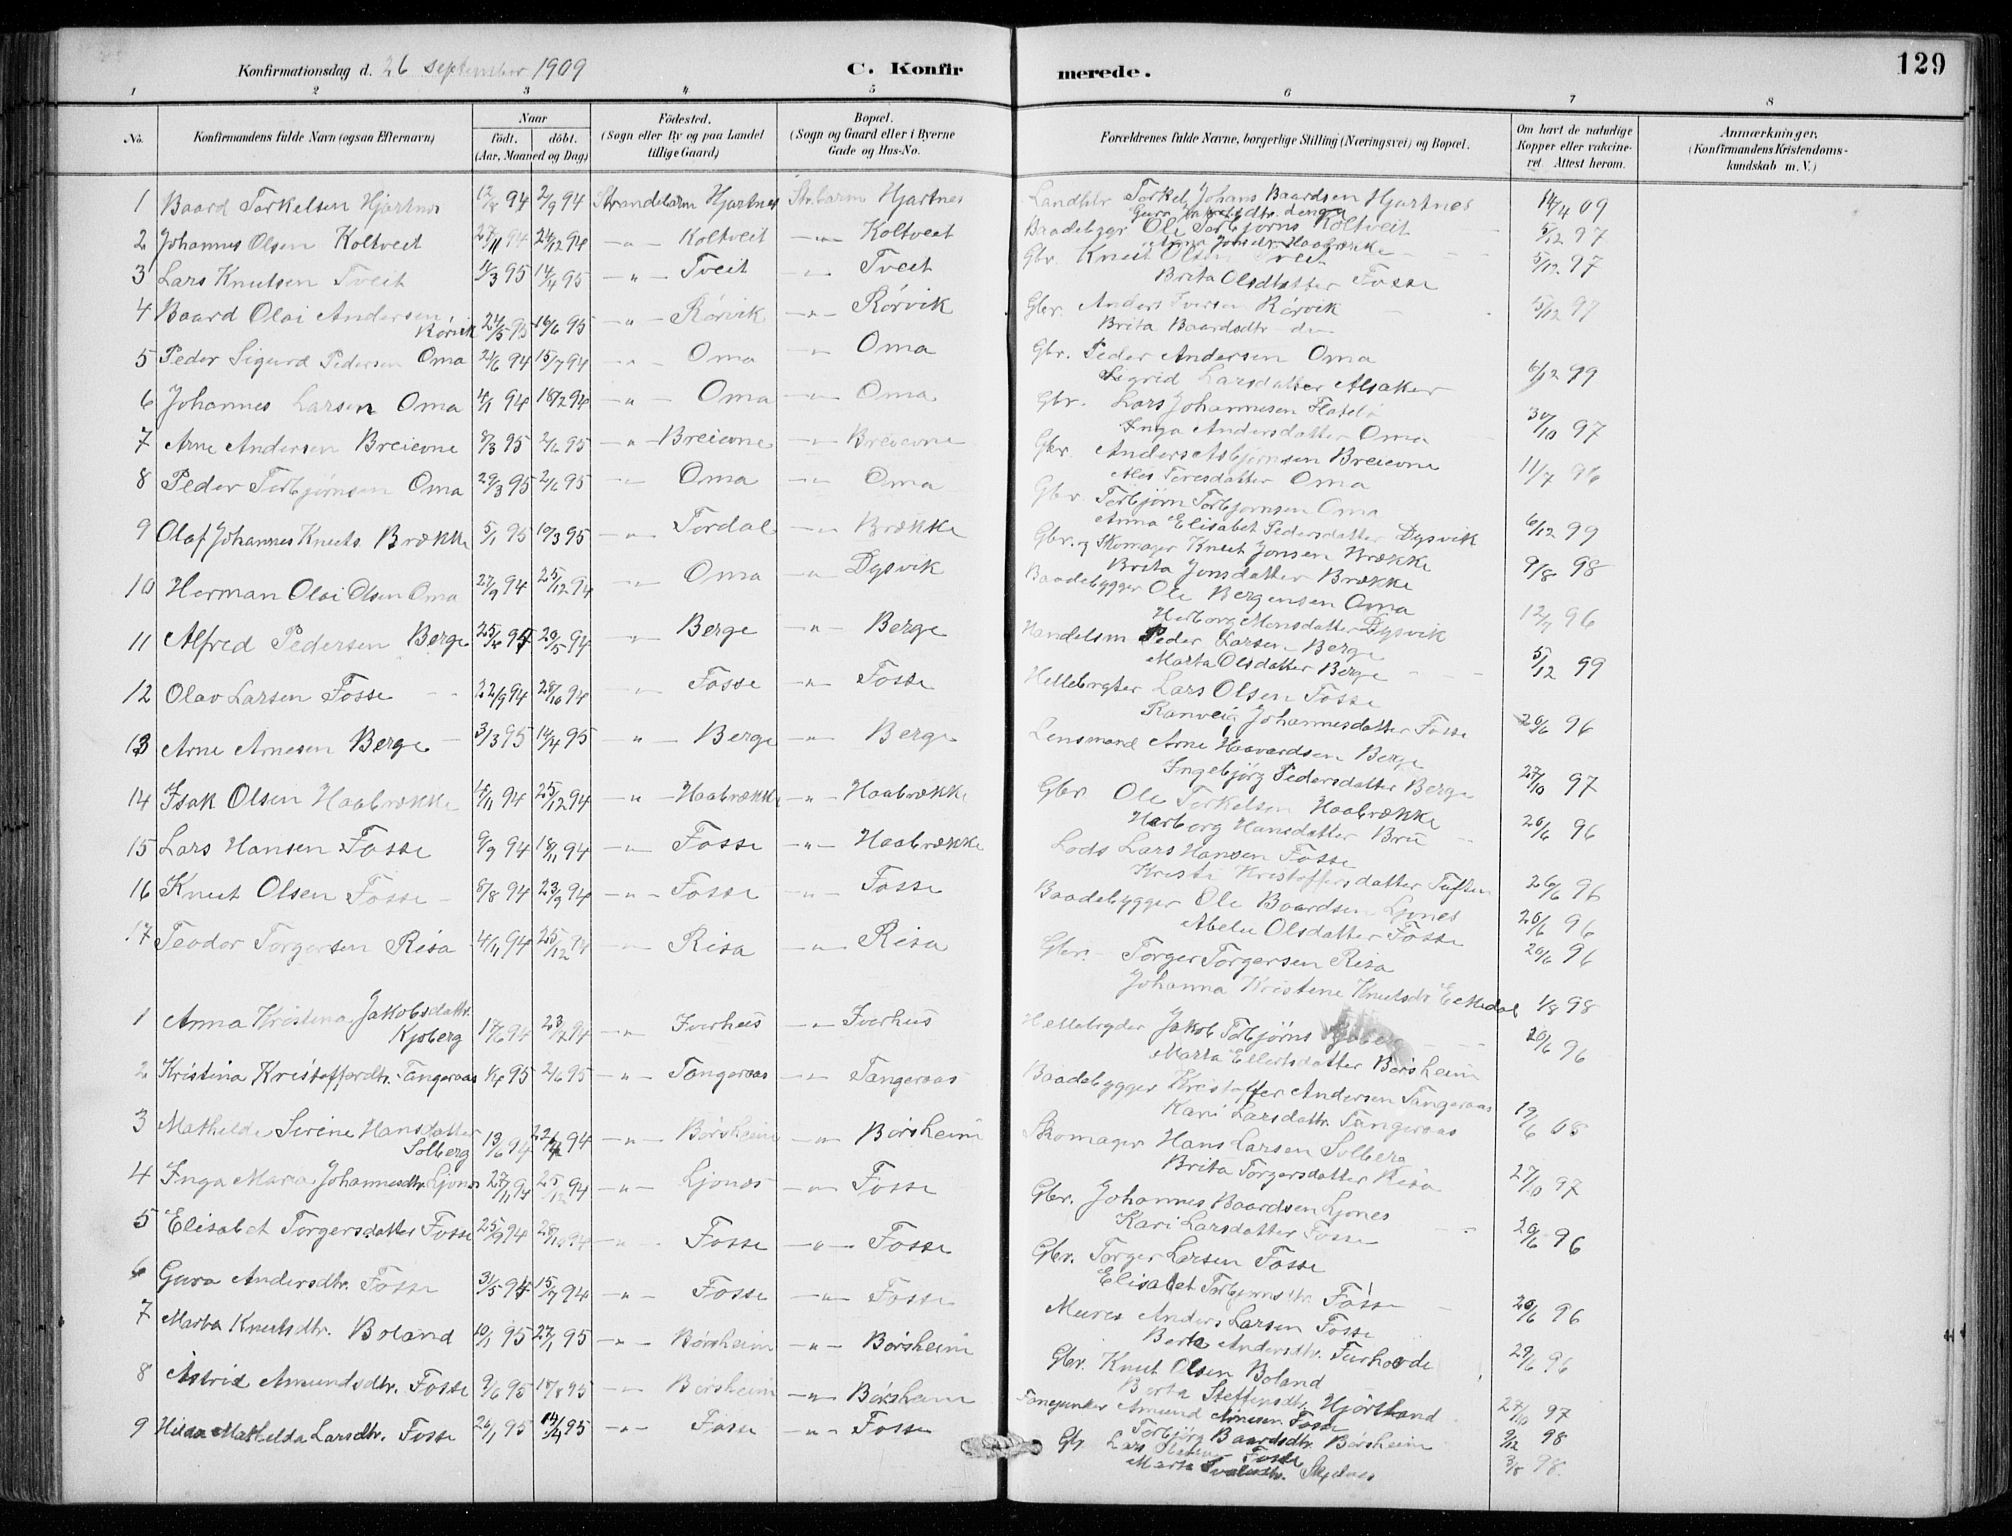 Konfirmationsdag d. 26 september 1909 C. Konfirmerede. 129
1 2 3 4 5 6 7 8
No. Konfirmandens fulde Navn (ogsaa Efternavn) Naar födt. döbt. (Aar, Maaned og Dag) Födested. (Sogn eller By og paa Landet tillige Gaard) Bopæl. (Sogn og Gaard eller i Byerne Gade og Hus-No. Forældrenes fulde Navne, borgerlige Stilling (Næringsvei) og Bopæl. Om havt de naturlige Kopper eller vaccineret. Attest herom. Anmærkninger. (Konfirmandens Kristendomskundskab m. V.)
1 Baard Torkelsen Hjartnes 94 2/9 94 Strandebarm Hjartnes Hjartnes Torkel Johans Baardsen Hjartnes 09
2 Johannes Olsen Koltveit 27/11 94 24/12 94 -"- Koltveit -"- Koltveit Baadebygr Ole Torbjørns Koltveit 5/12 97
3 Lars Knutsen Tveit 95 14/4 95 -"- Tveit -"- Tveit Gbr. Knut Olsen Tveit 5/12 97
Brita Olsdatter Fosse
4 Baard Olai Andersen Rörvik 24/5 95 16/6 95 -"- Rörvik -"- Rörvik Gbr. Anders Iversen Rörvik 5/12 97
Brita Baardsdtr
5 Peder Sigurd Pedersen Oma 94 15/7 94 -"- Oma -"- Oma Gbr. Peder Andersen Oma 6/12 99
Sigrid Larsdatter Alsaker
6 Johannes Larsen Oma 4/1 94 18/2 94 -"- Oma -"- Oma Gbr. Lars Johannesen Flatebö 30/10 97
Inga Andersdatter Oma
7 Arne Andersen Breievne 8/3 95 2/6 95 -"- Breievne -"- Breievne Gbr. Anders Asbjørnsen Breievne 11/7 96
Toresdatter Oma
8 Peder Torbjørnsen Oma 29/3 95 2/6 95 -"- Oma -"- Oma Gbr Torbjørn Torbjørnsen Oma 6/12 99
Anna Elisabet Pedersdatter Dysvik
9 Olaf Johannes Knuts. Brække 5/1 95 10/3 95 -"- Tordal -"- Brække Gbr. og Skomager Knut Jonsen Brække 9/8 98
Brita Jonsdatter Brække
10 Herman Olai Olsen Oma 27/9 94 25/12 94 -"- Oma -"- Dysvik Baadebygger Ole Bergensen Oma 12/7 96
Herborg Monsdatter Dysvik
11 Alfred Pedersen Berge 94 20/5 94 -"- Berge -"- Berge Handelsm Peder Larsen Berge 5/12 99
Marta Olsdatter Berge
12 Olav Larsen Fosse 22/9 94 28/10 94 -"- Fosse -"- Fosse Lars Olsen Fosse 20/6 96
Ranveig Johannesdatter Fosse
13 Arne Arnesen Berge 3/3 95 14/4 95 -"- Berge -"- Berge Lensmand Arne Haavardsen Berge 27/10 97
Ingebjörg Pedersdatter Berge
14 Isak Olsen Haabrække 94 25/12 94 -"- Haabrække -"- Haabrække Gbr Ole Torkelsen Haabrække 20/6 96
Herborg Hansdatter Bru
15 Lars Hansen Fosse 9/9 94 18/11 94 -"- Fosse -"- Haabrække Lods Lars Hansen Fosse 20/6 96
Kristi Kristoffersdatter Tuften
16 Knut Olsen Fosse 8/8 94 23/9 94 -"- Fosse -"- Fosse Baadebygger Ole Baardsen Ljones 20/6 96
Abelu Olsdatter Fosse
17 Teodor Torgersen Risa 4/11 94 25/12 94 -"- Risa -"- Risa Gbr. Torger Torgersen Risa 20/6 96
Johanna Kristine Knutsdr 1/8 98
1 Anna Kristina Jakobsdatr. Kjoberg 94 94 -"- Iverhus -"- Iverhus Jakob Torbjørns 20/6 96
Marta Ellertsdatter Börsheim
2 Kristina Kristoffersdtr. Tangeraas 95 2/6 95 -"- Tangeraas -"- Tangeraas Baadebygger Kristoffer Andersen Tangeraas 19/6 08
Kari Larsdattr. Tangeraas
3 Mathilde Sirine Hansdatter Solberg 13/6 94 94 -"- Börsheim -"- Börsheim Skomager Hans Larsen Solberg 27/10 97
Brita Torgersdatter Risa
4 Inga Maria Johannesdtr. Ljones 27/11 94 25/12 94 -"- Ljones -"- Fosse Gbr. Johannes Baardsen Ljones 20/6 96
Kari Larsdatter Fosse
5 Elisabet Torgersdatter Fosse 25/9 94 28/10 94 -"- Fosse -"- Fosse Gbr. Torger Larsen Fosse
Elisabet Torbjørnsdtr. Fosse 20/6 96
6 Guro Andersdtr. Fosse 31/5 94 15/7 94 -"- Fosse -"- Fosse Murer Anders Larsen Fosse
Berta Andersdtr. 29/6 96
7 Marta Knutsdtr. Boland 10/1 95 27/1 95 -"- Børsheim -"- Børsheim Gbr. Knut Olsen Boland
Berta Steffensdtr. Hjörtland 27/10 97
8 Astrid Amundsdtr. Fosse 9/6 95 18/8 95 -"- Børsheim -"- Børsheim Amund Arnesen Fosse
Torbjörg Baardsdtr. Børsheim 9/12 98
9 Hilda Mathilda Larsdtr. Fosse 26/1 95 14/4 95 -"- Fosse -"- Fosse Gbr. Lars Fosse 3/8 98.
Marta